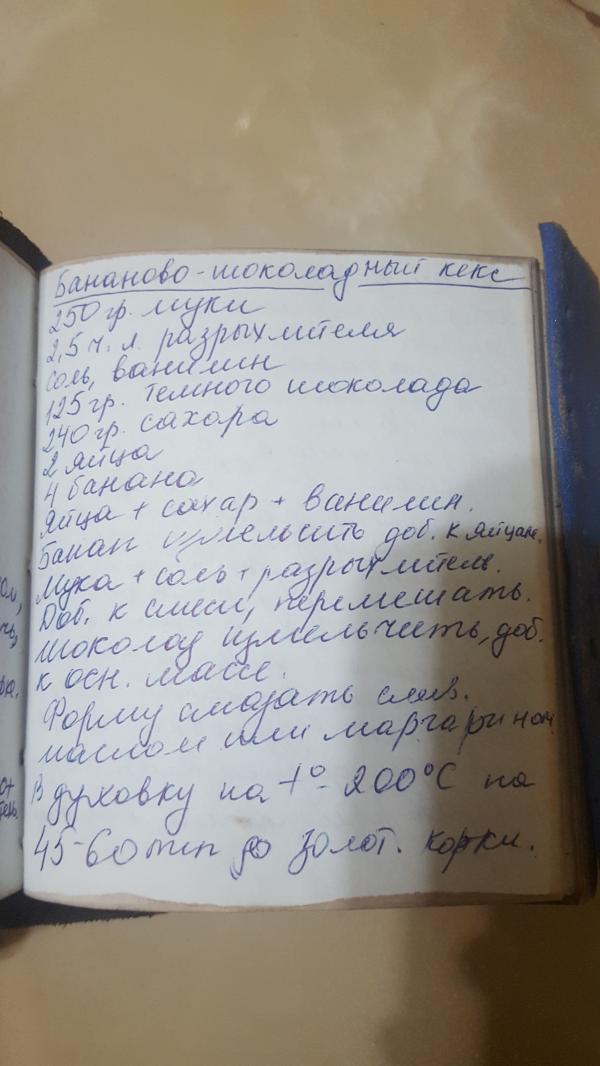 Бананово-шоколадный кекс
250 гр. муки
2,5 ч. л. разрыхлителя
соль, ванилин
125 гр. темного шоколада
240 гр. сахара
2 яйца
4 банана
яйца + сахар + ванилин.
Банан измельчить доб. к яйцам.
мука + соль + разрыхлитель.
Доб. к смеси, перемешать.
шоколад измельчить, доб.
к осн. массе.
Форму смазать слив.
маслом или маргарином
В духовку на t° - 200°С на
45-60 мин до золот. корки.